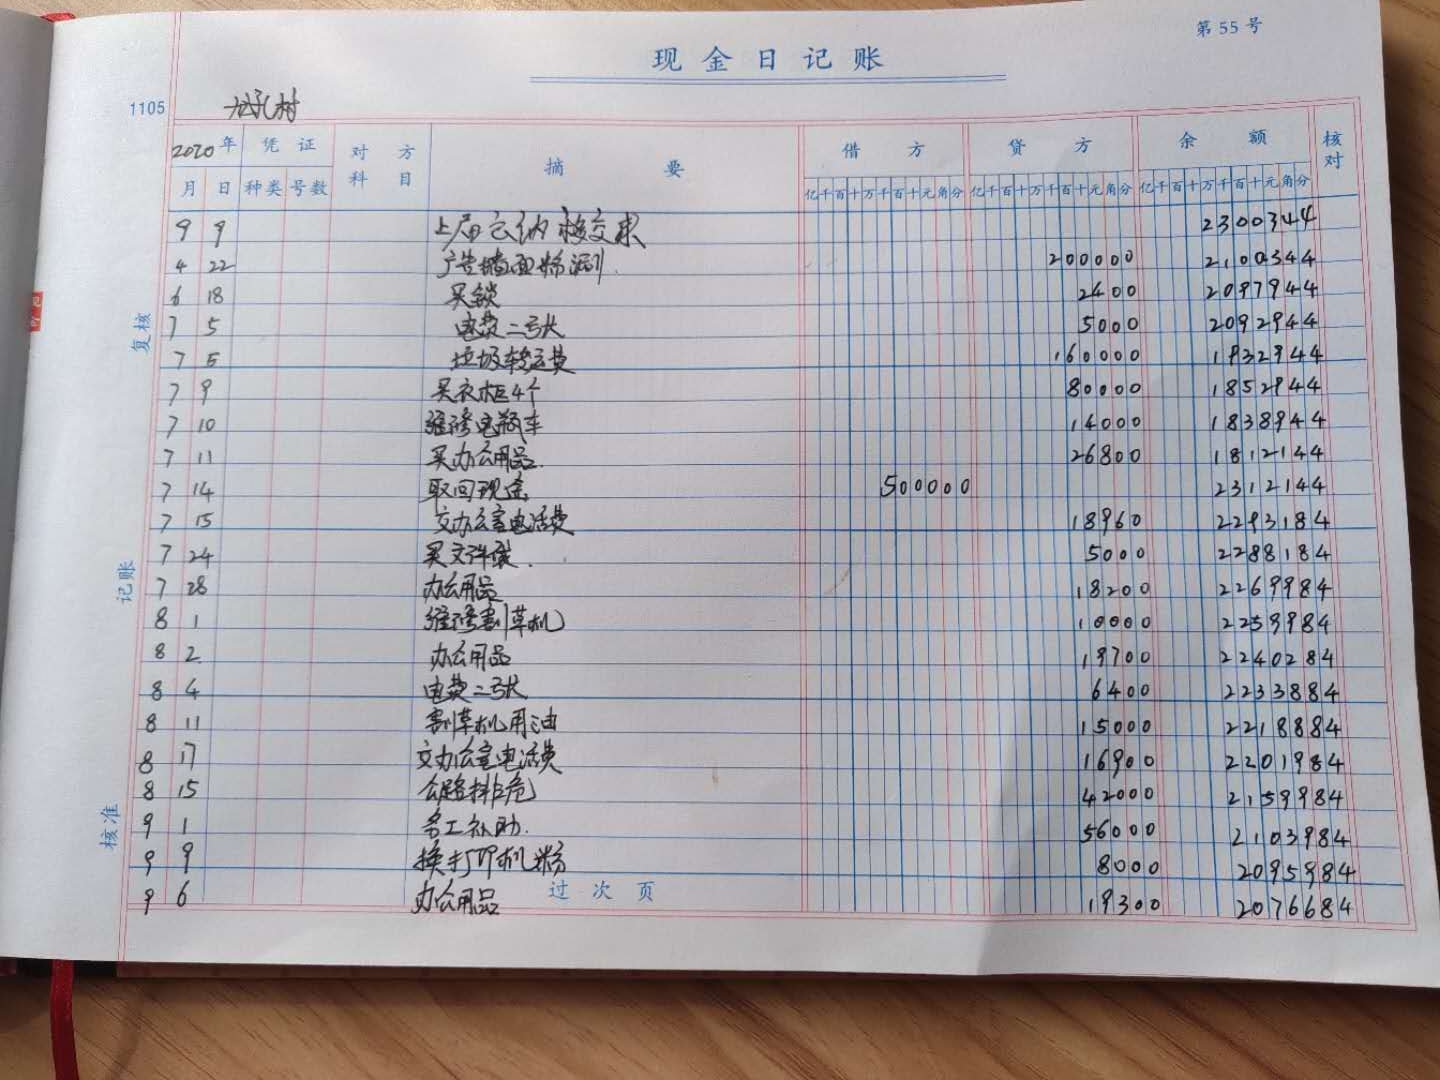 第 55 号
现金日记账
1105 村
2020年 凭证 对方科目 摘要 借方 贷方 余额 核对
月 日 种类 号数 亿千百十万千百十元角分 亿千百十万千百十元角分 亿千百十万千百十元角分
9 9 上届出纳移交来 2300344
4 22 广告墙面粉刷 200000 2100344
6 18 买锁 2400 2097944
7 5 电费二号 5000 2092944
7 5 垃圾转运费 160000 1932944
7 9 买衣柜4个 80000 1852944
7 10 维修电瓶车 14000 1838944
7 11 买办公用品. 26800 1812144
7 14 取回现金 500000 2312144
7 15 交办公室电话费 18960 2293184
7 24 买文件袋. 5000 2288184
7 28 办公用品 18200 2269984
8 1 维修割草机 10000 2259984
8 2 办公用品 19700 2240284
8 4 电费二号 6400 2233884
8 11 割草机用油 15000 2218884
8 17 交办公室电话费 16900 2201984
8 15 公路排危 42000 2159984
9 1 务工补助. 56000 2103984
9 9 换打印机粉 8000 2095984
9 6 办公用品 过次页 19300 2076684
复核
记账
核准